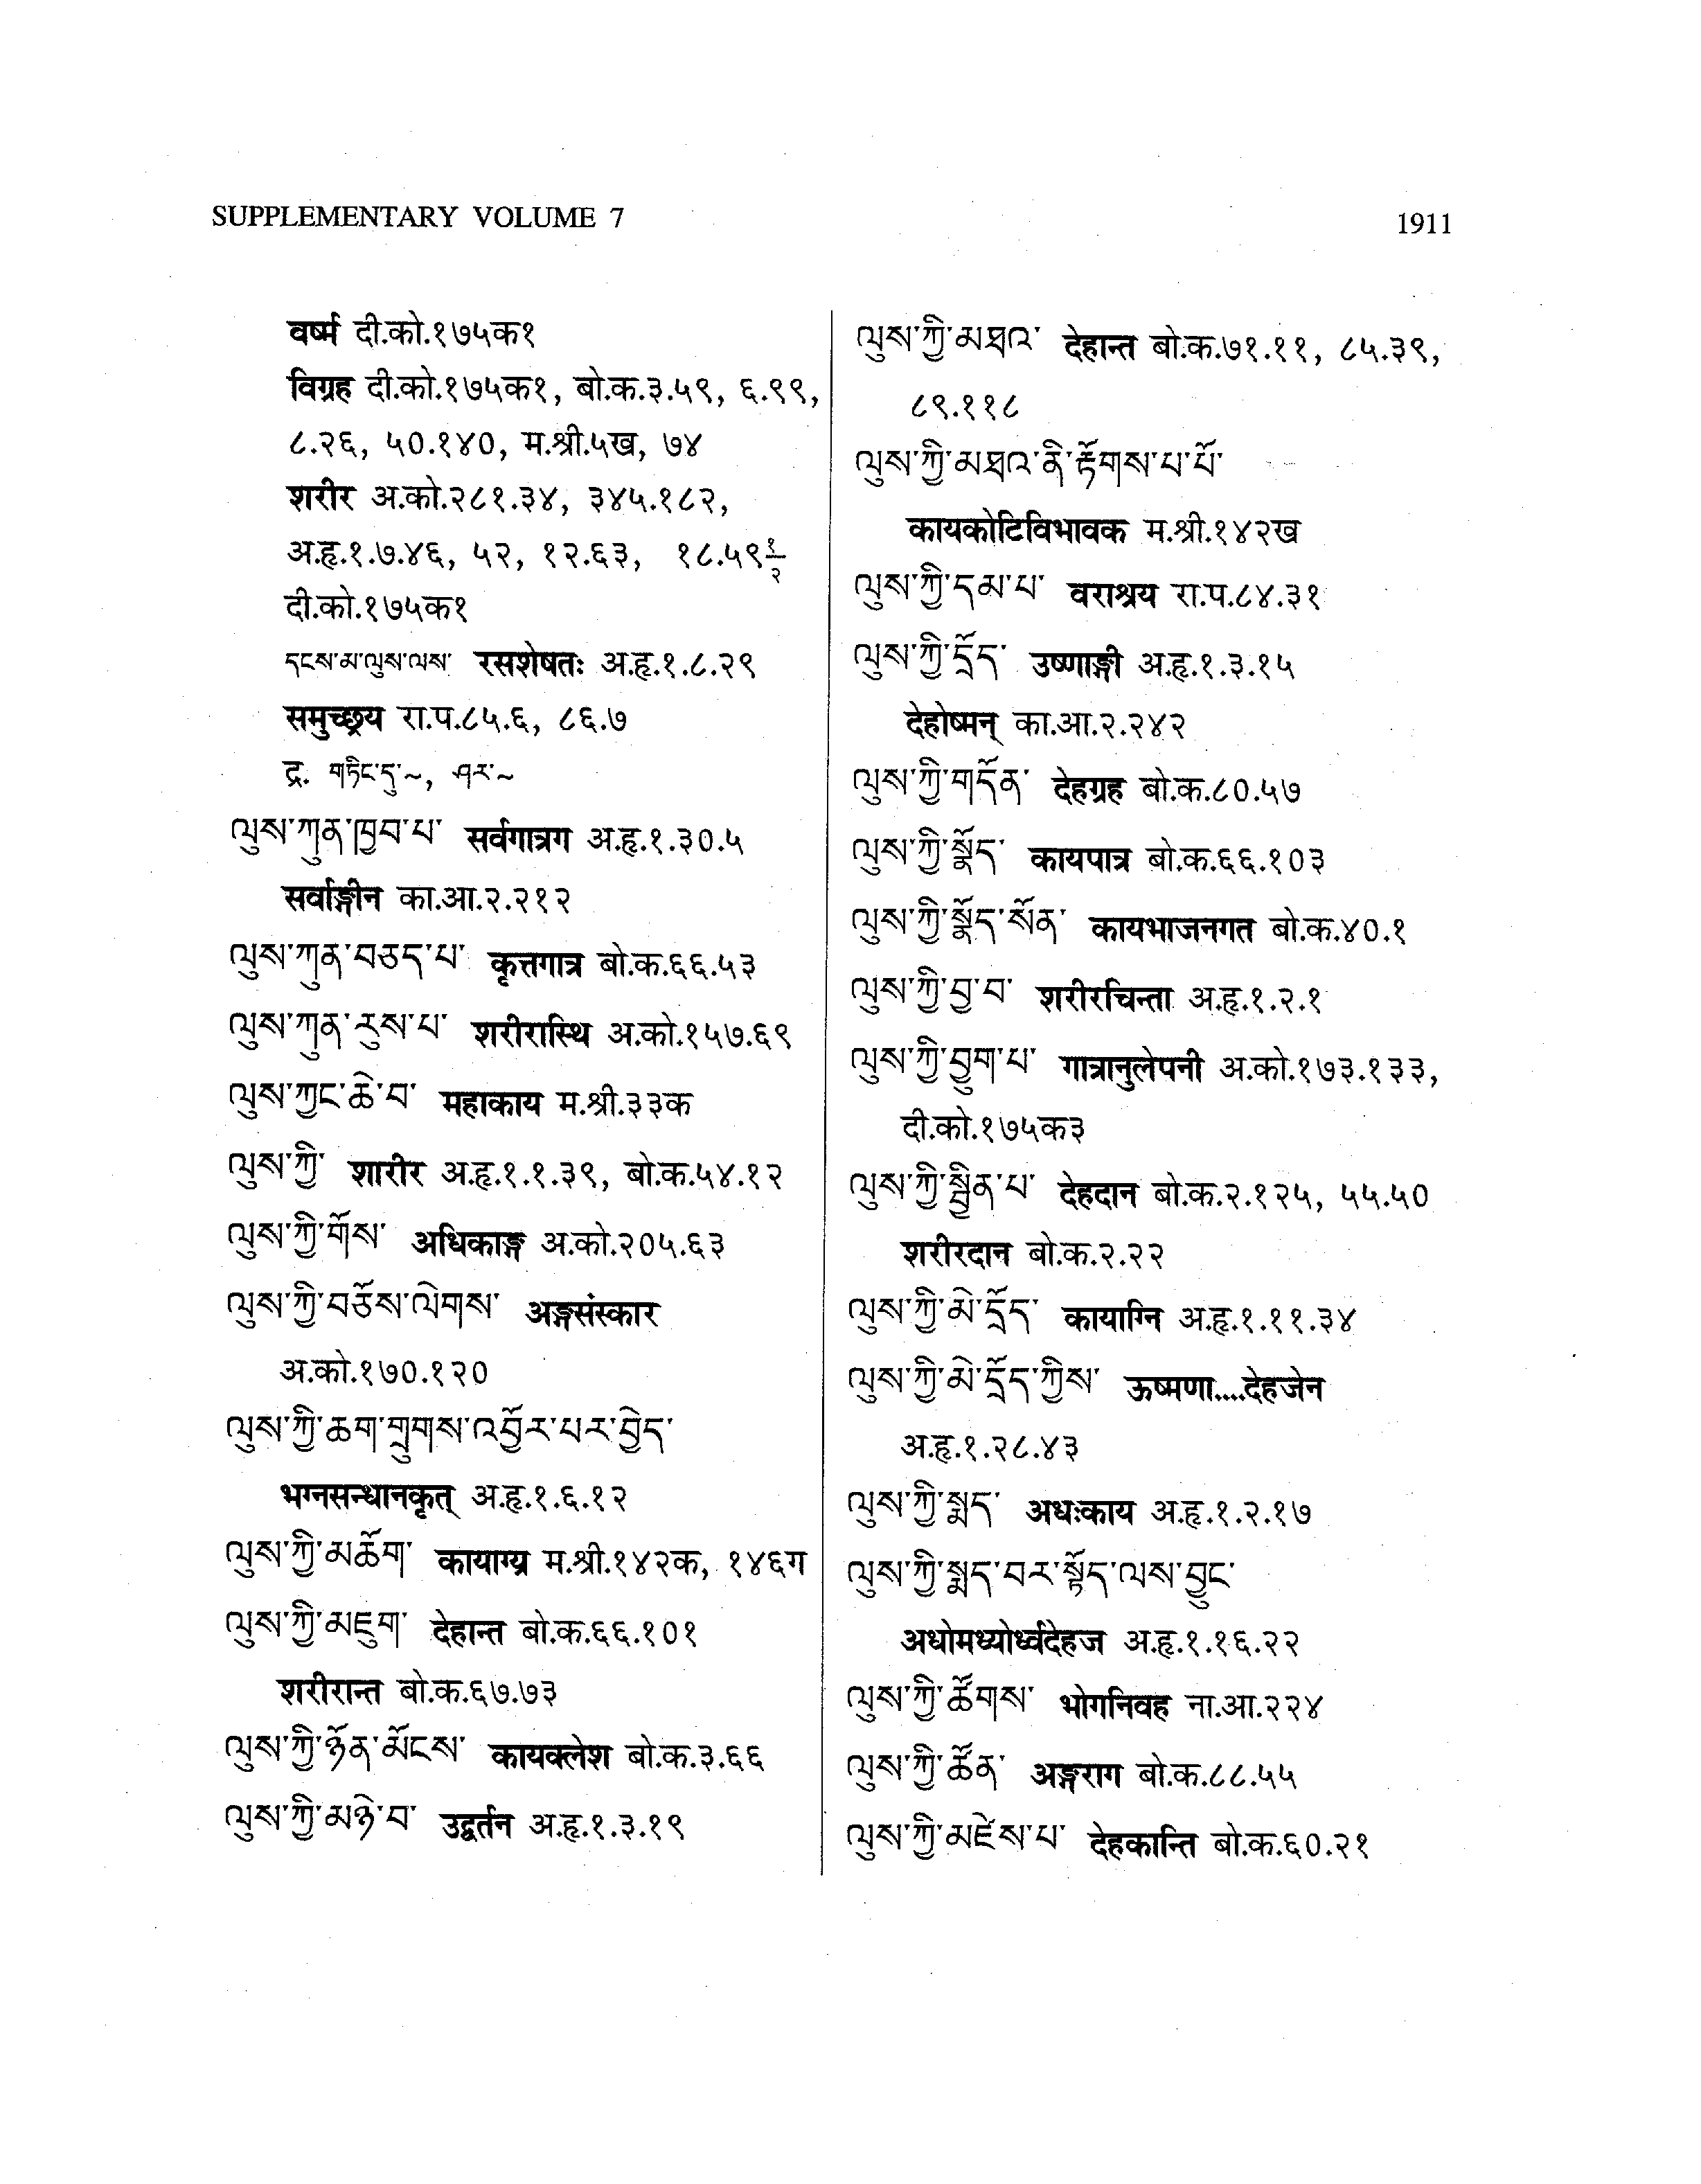 SUPPLEMENTARY VOLUME 7 1911
वर्ष्म दी.को.१७५क१
विग्रह दी.को.१७५क१, बो.क.३.५९, ६.९९,
८.२६, ५०.१४०, म.श्री.५ख, ७४
शरीर अ.को.२८१.३४, ३४५.१८२,
अ.हृ.१.७.४६, ५२, १२.६३, १८.५९१/२
दी.को.१७५क१
དངས་མ་ལུས་ལས་ रसशेषतः अ.हृ.१.८.२९
समुच्छ्रय रा.प.८५.६, ८६.७
द्र. གཏིང་དུ་~, ཤར་~
ལུས་ཀུན་ཁྱབ་པ་ सर्वगात्रग अ.हृ.१.३०.५
सर्वाङ्गीन का.आ.२.२१२
ལུས་ཀུན་བཅད་པ་ कृत्तगात्र बो.क.६६.५३
ལུས་ཀུན་རུས་པ་ शरीरास्थि अ.को.१५७.६९
ལུས་ཀྱང་ཆེ་བ་ महाकाय म.श्री.३३क
ལུས་ཀྱི་ शारीर अ.हृ.१.१.३९, बो.क.५४.१२
ལུས་ཀྱི་གོས་ अधिकाङ्ग अ.को.२०५.६३
ལུས་ཀྱི་བཅོས་ལེགས་ अङ्गसंस्कार
अ.को.१७०.१२०
ལུས་ཀྱི་ཆག་གྲུགས་འབྱོར་པར་བྱེད་
भग्नसन्धानकृत् अ.हृ.१.६.१२
ལུས་ཀྱི་མཆོག་ कायाग्र्य म.श्री.१४२क, १४६ग
ལུས་ཀྱི་མཇུག་ देहान्त बो.क.६६.१०१
शरीरान्त बो.क.६७.७३
ལུས་ཀྱི་ཉོན་མོངས་ कायक्लेश बो.क.३.६६
ལུས་ཀྱི་མཉེ་བ་ उद्वर्तन अ.हृ.१.३.१९
ལུས་ཀྱི་མཐའ་ देहान्त बो.क.७१.११, ८५.३९,
८९.११८
ལུས་ཀྱི་མཐའ་ནི་རྟོགས་པ་པོ་
कायकोटिविभावक म.श्री.१४२ख
ལུས་ཀྱི་དམ་པ་ वराश्रय रा.प.८४.३१
ལུས་ཀྱི་དྲོད་ उष्णाङ्गी अ.हृ.१.३.१५
देहोष्मन् का.आ.२.२४२
ལུས་ཀྱི་གདོན་ देहग्रह बो.क.८०.५७
ལུས་ཀྱི་སྣོད་ कायपात्र बो.क.६६.१०३
ལུས་ཀྱི་སྣོད་སོན་ कायभाजनगत बो.क.४०.१
ལུས་ཀྱི་བྱ་བ་ शरीरचिन्ता अ.हृ.१.२.१
ལུས་ཀྱི་བྱུག་པ་ गात्रानुलेपनी अ.को.१७३.१३३,
दी.को.१७५क३
ལུས་ཀྱི་སྦྱིན་པ་ देहदान बो.क.२.१२५, ५५.५०
शरीरदान बो.क.२.२२
ལུས་ཀྱི་མེ་དྲོད་ कायाग्नि अ.हृ.१.११.३४
ལུས་ཀྱི་མེ་དྲོད་ཀྱིས་ ऊष्मणा....देहजेन
अ.हृ.१.२८.४३
ལུས་ཀྱི་སྨད་ अधःकाय अ.हृ.१.२.१७
ལུས་ཀྱི་སྨད་བར་སྟོད་ལས་བྱུང་
अधोमध्योर्ध्वदेहज अ.हृ.१.१६.२२
ལུས་ཀྱི་ཚོགས་ भोगनिवह ना.आ.२२४
ལུས་ཀྱི་ཚོན་ अङ्गराग बो.क.८८.५५
ལུས་ཀྱི་མཛེས་པ་ देहकान्ति बो.क.६०.२१